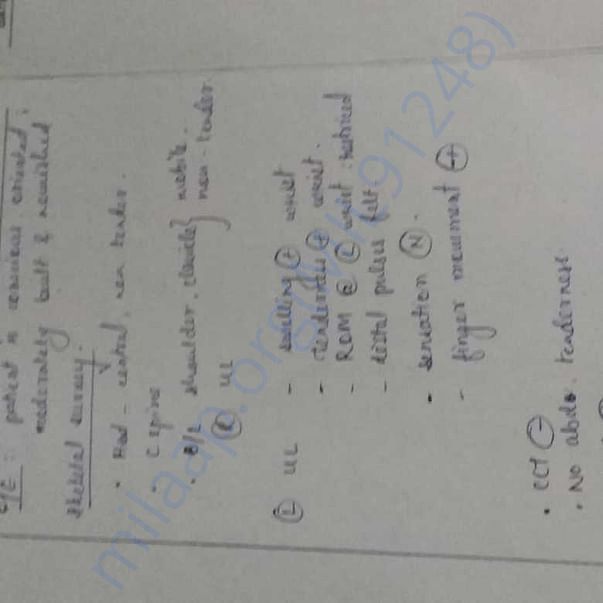 O/E : patient is conscious, oriented,
moderately built & nourished
Skeletal survey.
• Head - central, non tender.
• C spine
• B/L shoulder, clavicle } mobile.
Ⓡ UL non-tender
Ⓛ UL - swelling ⊕ wrist
- tenderness ⊕ wrist.
- ROM @ Ⓛ wrist : restricted
- distal pulses felt
• sensation Ⓝ.
- finger movement ⊕
• CCT ⊖
• NO abdo. tenderness.
milaap.org
91248)